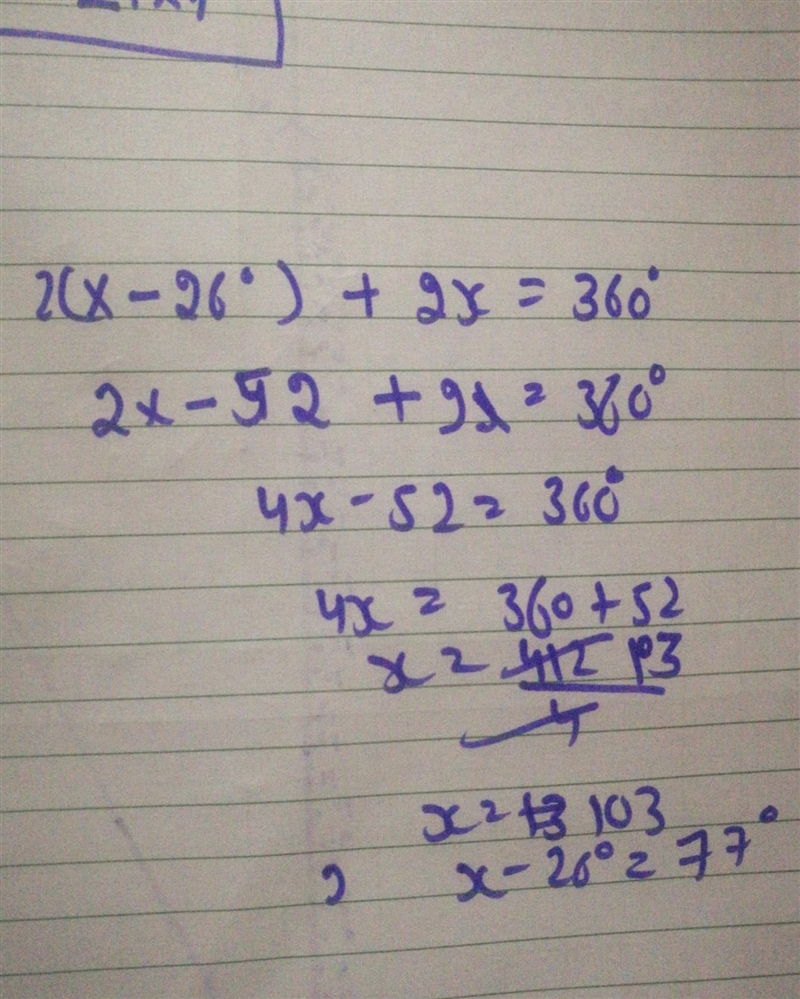 2(x - 26°) + 2x = 360°
2x - 52 + 2x = 360°
4x - 52 = 360°
4x = 360 + 52
x = 412 103
4
x = 13 103
2 x - 26° = 77°